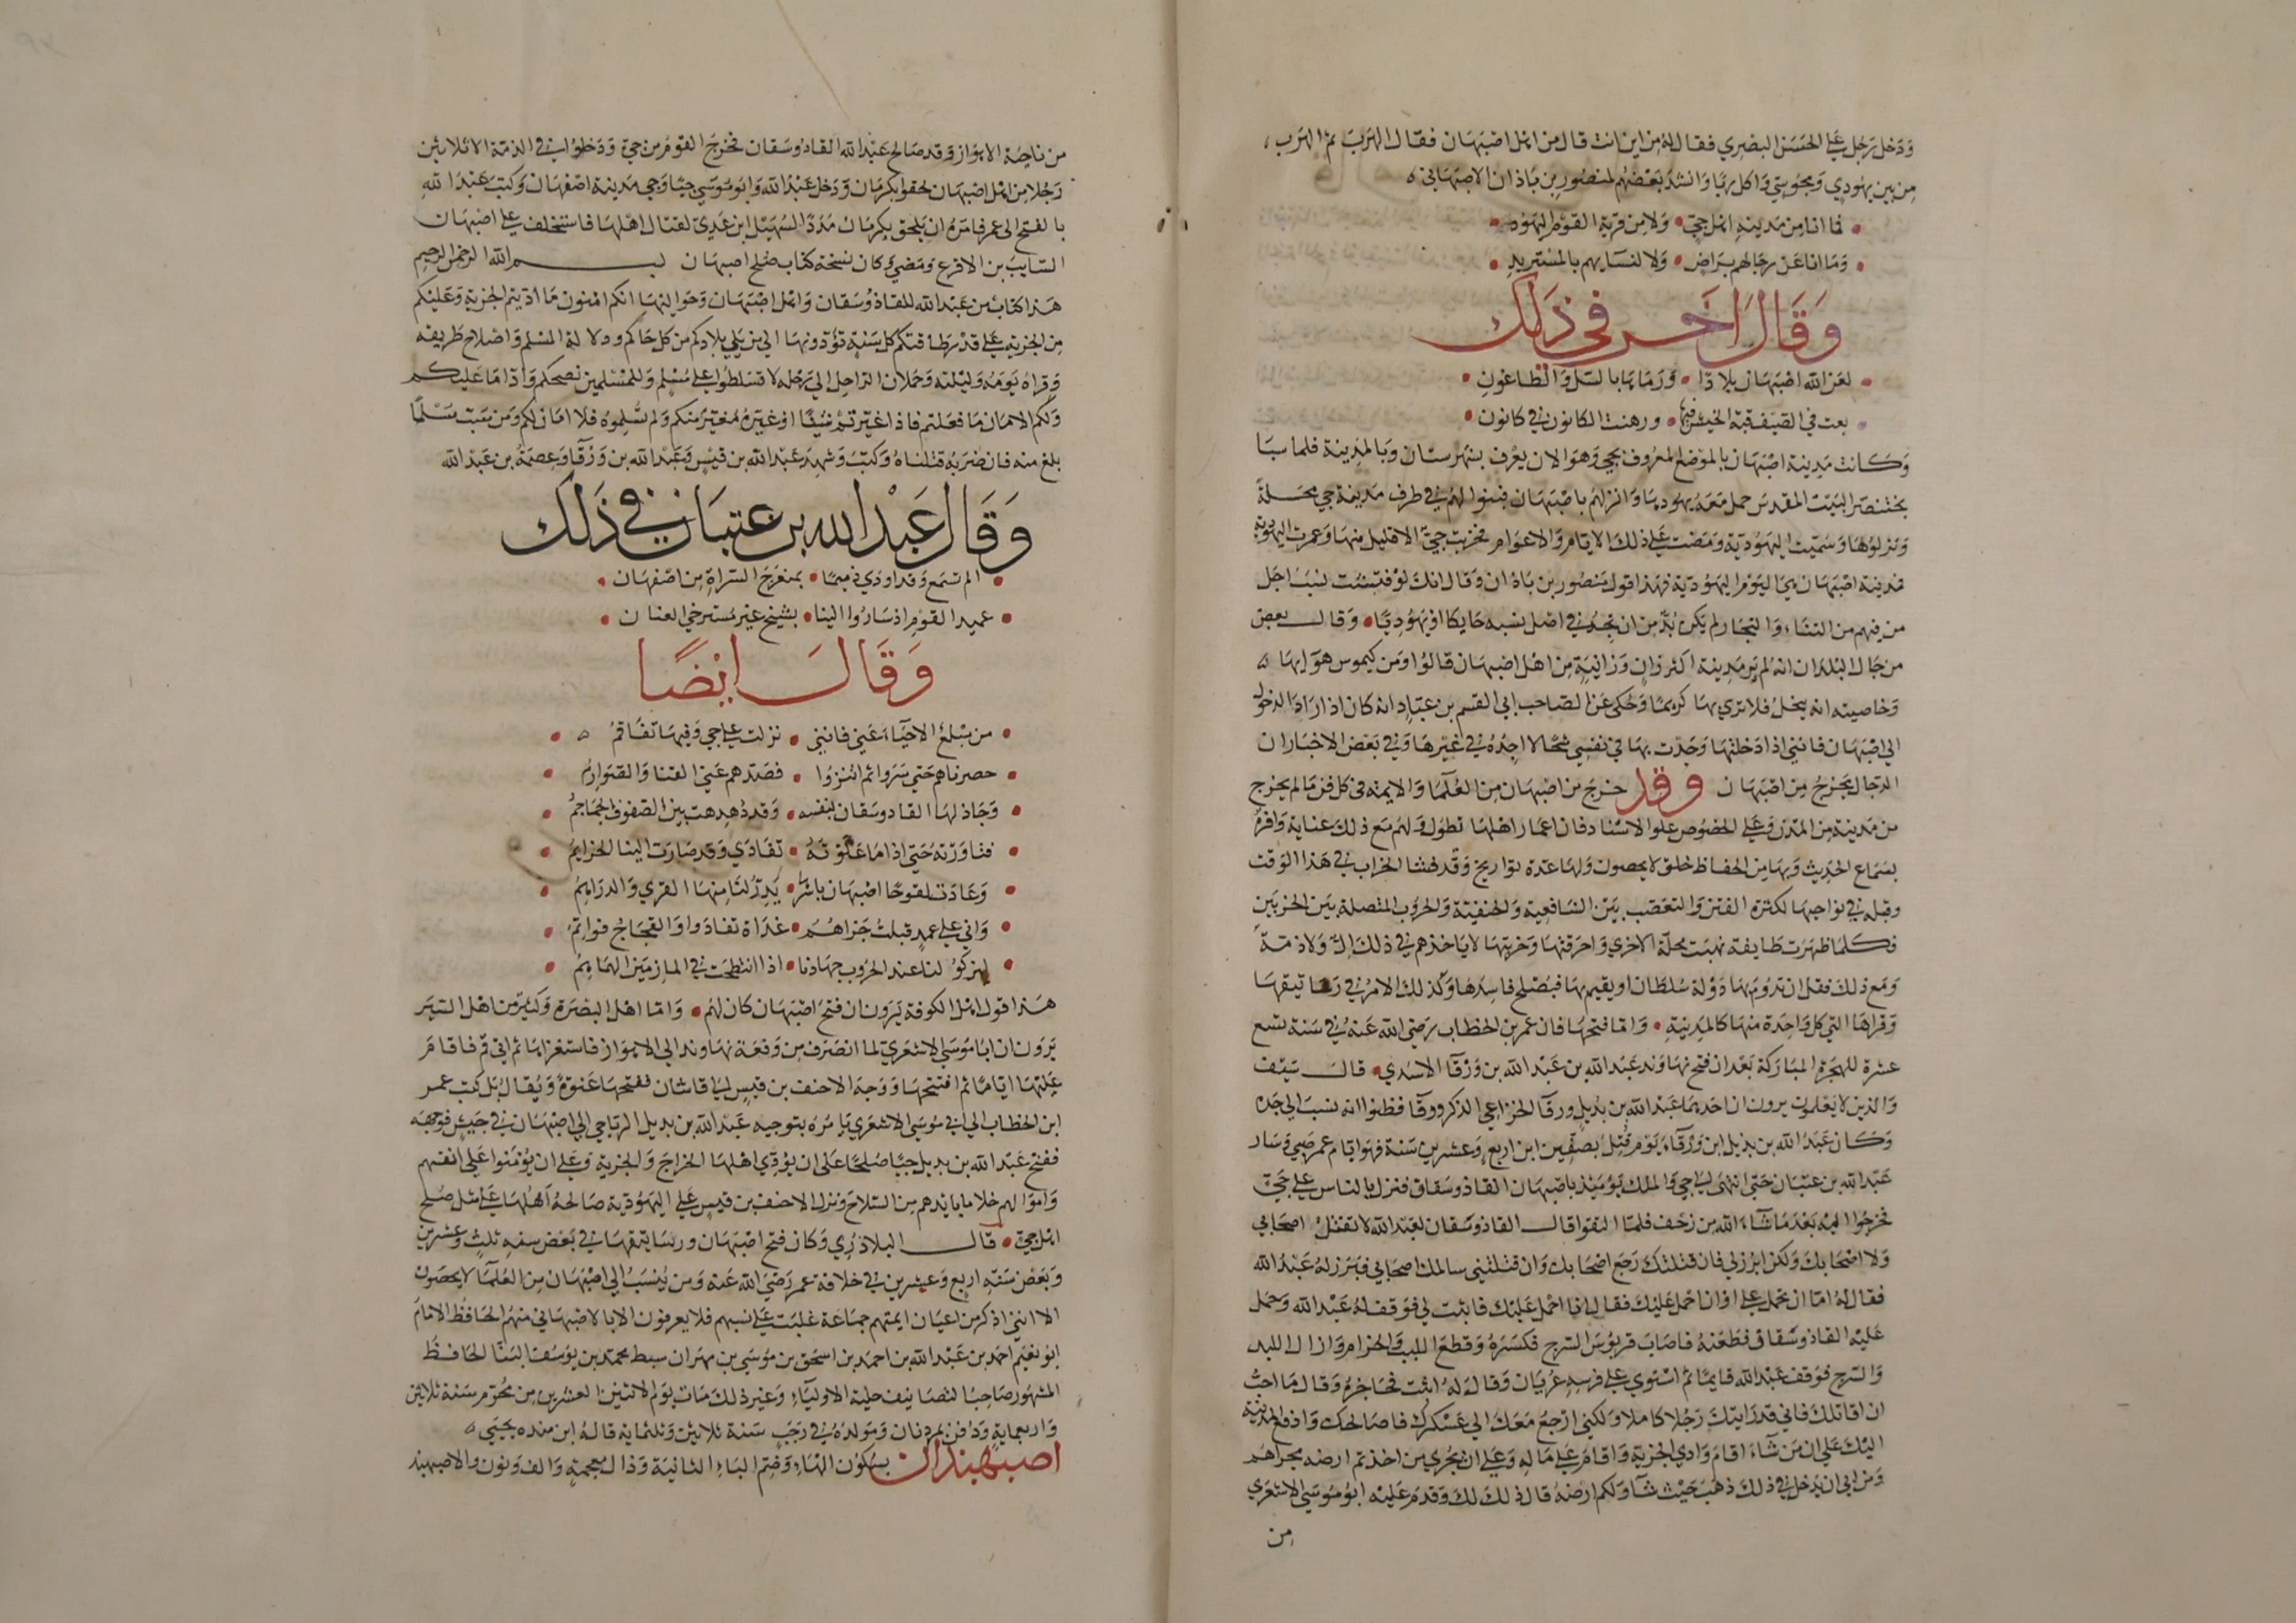 وَدَخل رَجُل علَى الحَسَن البَصري فقال لهُ مِن اين انت قال مِن اهل اصْبَهان فقال الهَرَب ثم الهَرب
مِن بين يهُودي وَمجُوسيّ وَاكل ربَا وَانشدَ بَعضهُم لمنصُور بن بَاذان الاصبَهاني ه
فما انا مِن مَدينةِ اهل جيّ • وَلا مِن قرية القوْم اليَهُود •
وَمَا انا عَن رجالهم برَاضٍ • وَلا لنسَايهم بالمسْتريدِ •
وَقَالَ اخَر في ذَلِكَ
لعَن الله اصْبَهان بلادًا • وَرَمَاهَا بالسّل وَالطاعُونِ •
بعت في الصيف قبة الخيش فيها • ورهنت الكانون في كانون •
وَكانت مَدينة اصْبَهان بالموْضع المعرُوف بجي وَهوَ الان يعْرف بشهرستان وَبالمدينة فلما سبَا
بختنصّر البَيْت المقدس حمل مَعَهُ يهُودها وَانزلهُم باصْبَهان فبنوا لهُم في طرف مَدينة جي محَلةً
وَنزلوُهَا وَسُميّت اليَهُوديّة وَمَضت علَى ذلك الايام وَالاعوَام فخربَت جيّ الا قليل منهَا وَعمرت اليَهُوديّة
فمَدينة اصْبَهان هي اليَوْم اليَهُوديّة فهَذا قول مَنصُور بن بَاذان وَقال انك لوْ فتشت نسَبَ اجَل
من فيهم من التناء وَالتجار لم يكن بُدّ من ان تجدُ في اصْل نسَبه حَايكا اوْ يَهُوديًّا • وَقال بعض
من جَال البلدان انه لم يَر مَدينة اكثر زانٍ وَزانيَةٍ مِن اهل اصبَهان قالوُا ومَن كيموس هوَايها ه
وَخاصيته انه يبخلُ فلا ترى بهَا كريمًا وَحُكي عَن الصاحب ابي القسم بن عبّاد انه كان اذا ارَادَ الدخول
الي اصْبَهان فانني اذا دَخلتها وَجَدْت بهَا في نفسي شحًا لا اجدُهُ في غيْرهَا وَفي بَعْض الاخبَار ان
الدجال يخرجُ مِن اصْبَهان وقد خرجَ من اصْبَهان مِن العُلمَا وَالايمة في كل فنّ مَا لم يخرج
من مَدينة مِن المدن وَعلى الخصُوص علو الاسْناد فان اعمَار اهلهَا تطول وَلهُم مَع ذلك عنَايَة وَافرةٌ
بسَماع الحَديث وَبهَا مِن الحفاظ خلق لا يحصون وَلهَا عدة توَاريخ وَقد فشا الخرَاب في هَذا الوَقت
وقبله في نوَاحيهَا لكثرة الفتن وَالتعَصّب بَيْن الشافعية وَالحنفيّة وَالحُروُب المتصلة بَين الحزبَيْن
فكلمَا ظهَرت طَايفة نهبَت محلّة الاخري وَاحرَقتهَا وَخربتهَا لا ياخذهم في ذلك الّ وَلا ذمّة
وَمَع ذلك فقل ان تدُوم بهَا دَوْلة سُلطَان او يقيم بهَا فيُصْلح فاسدهَا وَكذلك الامر في رسَاتيقهَا
وَقراهَا التي كل وَاحدَة منهَا كالمدينة • وَامّا فتحهَا فان عمر بن الخطاب رَضي الله عَنهُ في سَنة تسع
عشرة للهجرة المبَاركة بَعْد ان فتح نهاوَند عَبْد الله بن عَبْد الله بن وَرْقا الاسَدي • قال سَيْف
وَالذين لا يَعْلمون يرون ان احدَهما عَبْد الله بن بُديل ورقا الخزاعي الذكر وَرقا فظنوا انه نسبَ الي جَده
وَكان عَبْد الله بن بديل ابن وَرْقاء يَوْم قُتِل بصفّين ابن اربع وَعشرين سَنة فهوَ ايام عمر صَبي وَسَار
عَبْد الله بن عتبَان حَتى انتهى الي جي وَالملك يَوْمَيذ باصْبَهان الفاذوسقان فنزل بالناس علي جيّ
فخرجُوا اليْه بَعْدَ مَا شاءَ الله من زحْف فلمّا التقوا قال الفاذوسقان لعَبْد الله لا تقتلْ اصحَابي
وَلا اصْحَابَك وَلكن ابرُز لي فان قتلتك رَجَع اصْحَابك وَان قتلتني سالمك اصحَابي فبَرز لهُ عَبْد الله
فقال لهُ امّا ان تحمل علَي اوْ ان احْمل عَليْك فقال انا احْمل عَليْك فاثبت لي فوَقف لهُ عَبْد الله وَحمل
عَليْه الفاذوسقان فطعَنهُ فاصَابَ قربوُس السّرج فكسَرَهُ وَقطع اللبَب وَالحزام وَازال اللبد
وَالسّرج فوَقف عَبْد الله قايمًا ثم اسْتوي علَى فرسهِ عُريان وَقال لهُ اثبت فحَاجزهُ وَقال مَا احبّ
ان اقاتلك فاني قد رَايتك رَجُلا كاملا وَلكني ارْجعُ مَعَك الي عَسْكرك فاصَالحك وَادفع المدينة
اليْك عَلى ان مَن شاءَ اقامَ وَادي الجزية وَاقامَ علَى مَاله وَعلَى ان يجرى من اخذتم ارضه مجراهُم
وَمن ابي ان يَدخل في ذلك ذهَب حَيْث شاء وَلكم ارْضهُ قال ذلك لك وَقدم عَليْه ابُو مُوسَي الاشعَري
من
من ناحيَة الاهوَاز وَقد صَالح عَبْد الله الفاذوسقان فخرجَ القوْم من جيّ وَدَخلوُا في الذمّة الا ثلاثين
رَجُلا من اهل اصْبَهان لحقوا بكرمَان وَدَخل عَبْد الله وَابُو مُوسَي جيّا وَجي مَدينة اصْفهَان وَكتبَ عَبْد الله
بالفتح الى عمر فامَرهُ ان يَلحق بكرمَان مَدَدًا لسُهَيْل ابن عَديّ لقتال اهْلهَا فاستخلف على اصْبَهان
السّايبَ بن الاقرع وَمَضي وَكان نسخة كتاب صُلح اصبهان بسم الله الرحمن الرحيم
هَذا كتابٌ من عَبْد الله للفاذوُسقان وَاهْل اصْبَهان وَحَواليهَا انكم امنون مَا ادّيتم الجزية وَعَليْكم
مِن الجزية علَى قدْر طَاقتكم كل سَنةٍ تؤدّونهَا الي من يَلي بلادكم من كل حَالم ودلالة المسْلم وَاصْلاح طَريقه
وَقراهُ يَوْمَهُ وَليْلته وَحملان الرّاجل الي رَحْله لا تسَلطوُا علَى مُسْلم وَللمسْلمين نصحكم وَاداء مَا عَليكم
وَلكم الامَان مَا فعَلتم فاذا غيّرتم شَيْئًا اوْ غيّرهُ مُغيّر منكم وَلم تُسْلموهُ فلا امَان لكم وَمَن سَبّ مسْلمًا
بلغ منه فان ضرَبه قتلناهُ وَكتبَ وَشهدَ عَبْد الله بن قيْس وَعَبْد الله بن وَرْقا وَعصمَةُ بن عَبْد الله
وَقَال عَبْد الله بن عتبَان في ذَلكَ
• الم تسْمَع وَقد اودي ذميمًا • بمنعَرج السّراةِ مِن اصْفهَان •
• عميد القوْم اذ سَارُوا الينا • بشيخ غيْر مُسْترخي العنان •
وَقَالَ ايْضًا
• مَن مبْلغُ الاحيَاء عَني فانني • نزلت علَى جي وَفيهَا تفاقمُ ه •
• حصرناهم حَتى سَروا ثم انتزوُا • فصَدهم عَنّا القنا وَالصَوَارمُ •
• وَجَاد لهَا الفاذوسقان بنفسه • وَقد دُهدِهت بين الصفوف الجمَاجمُ •
• فثاوَرْتهُ حَتى اذا مَا عَلوْتهُ • تفادَي وَقد صَارَت الينا الخزايمُ •
• وَعَادَت لقوحًا اصْبهَان باسْرهَا • يَدرّ لنا منهَا القري وَالدرَاهمُ •
• وَاني على عمدٍ قبلتُ جَزاهُم • غدَاة تفادَوا وَالعَجَاج قوَاتمُ •
• ليزكوُ لنا عند الحرُوب جهَادنا • اذا انتطحَت في المازمَيْن الهمَاهِمُ •
هَذا قول اهل الكوفة يَرَون ان فتح اصْبَهان كان لهُم • وَامّا اهل البصْرَة وَكثيرٌ من اهل السّيَر
يَرَون ان ابَا موُسَي الاشعَري لما انصَرف مِن وَقعَة نهاوند الي الاهوَاز فاستغزاها ثم اتي قمّ فاقامَ
عَليْهَا ايّامًا ثم افتتحهَا وَوَجهَ الاحنف بن قيس الي قاشان ففتحهَا عَنوَةً وَيُقال بَل كتبَ عمر
ابن الخطاب الي ابي مُوسَي الاشعَري يَامُرُهُ بتوجيه عَبْد الله بن بديل الرياحي الي اصْبَهان في جَيْش فوَجهَه
ففتح عَبْد الله بن بديل جيّا صُلحًا علَى ان يؤدّي اهْلهَا الخراجَ وَالجزيَة وَعلَى ان يُؤمَنوا علَى انفسهم
وَاموَالهم خلا ما بايديهم من السّلاحَ وَنزل الاحنف بن قيس علَى اليَهُوديّة صَالحَهُ اهْلهَا علَى مثل صُلح
اهل جيّ • قال البَلاذرُي وَكان فتح اصْبَهان ورسَاتيقهَا في بَعْض سنهِ ثلثٍ وَعشرين
وَبَعْض سَنة اربع وَعشرين في خلافة عمر رَضيَ الله عَنه وَمَن يُنسَبُ الي اصْبَهان مِن العُلمَا لا يحصَون
الا انني اذكر من اعيَان ايمتهم جمَاعة غلبَت علَى نسَبهم فلا يعرفون الا بالاصْبهَاني منهُم الحَافظ الامَامَ
ابو نعَيم احمَد بن عَبْد الله بن احمَد بن اسحَق بن مُوسَي بن مهرَان سبط محمّد بن يوُسُف البَنّا الحَافظ
المشهُور صَاحبُ التصَانيف حلية الاوليَاءِ وَغير ذلك مَات يَوْم الاثنين العشرين من محُرّم سَنة ثلاثين
وَاربعماية وَدُفن بمردبان وَمَولدُهُ في رَجَب سَنة ثلاثين وَثلثماية قالهُ ابن منده يحيَي ه
اصبهبذان بسكوُن الهَاءِ وَضم البَاءِ الثانيَة وَذال مُعجمةٍ وَالف وَنون والاصبهبذ